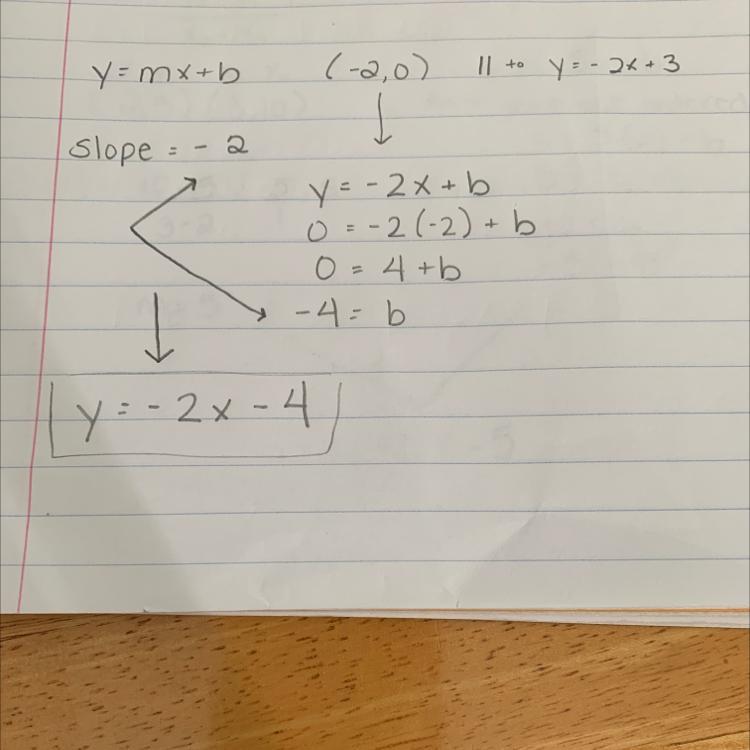 y = mx + b (-2,0) || to y = - 2x + 3
slope = - 2
y = -2x + b
0 = -2(-2) + b
0 = 4 + b
-4 = b
y = - 2x - 4